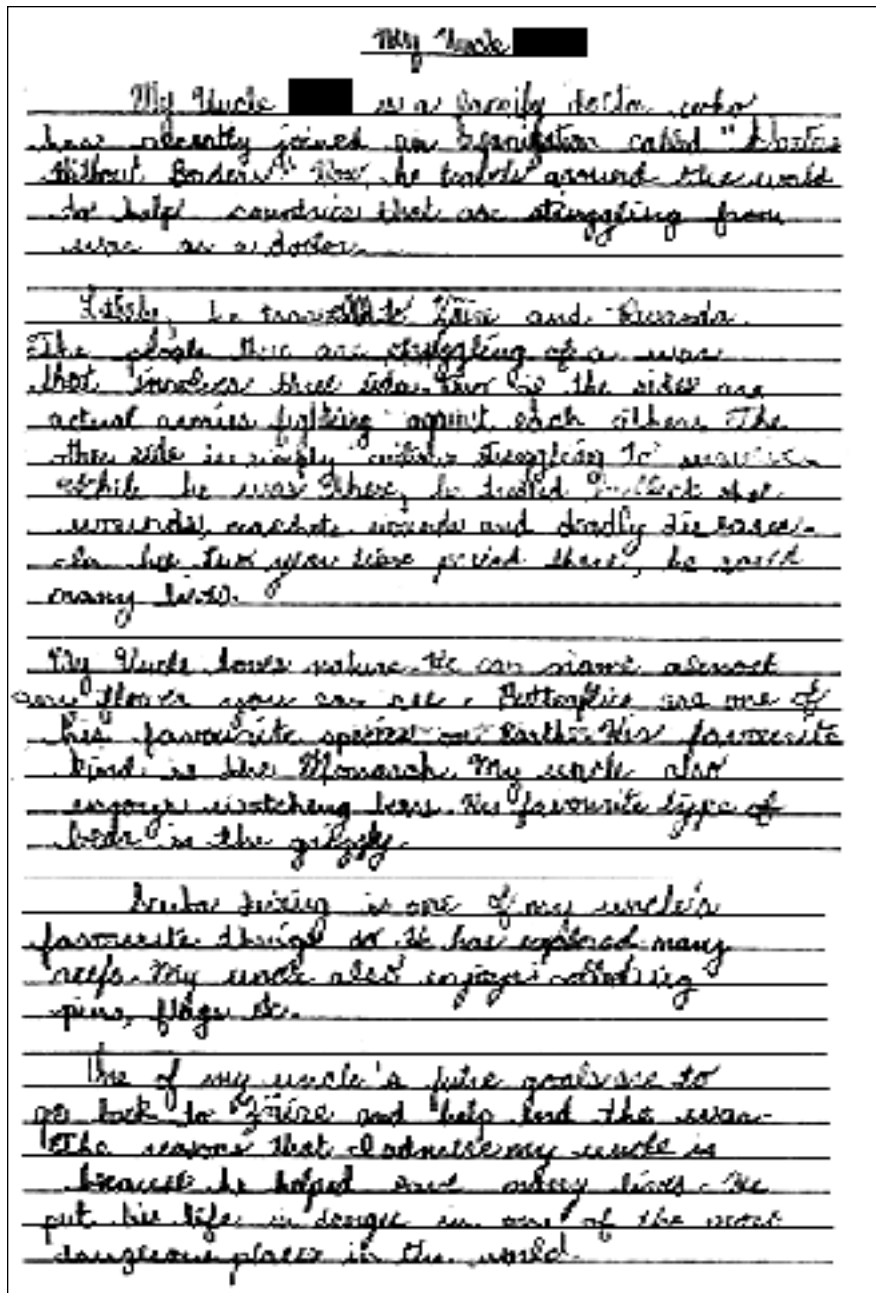 My Uncle
My Uncle is a family doctor who
has recently joined an called "Doctors
Without Borders" Now, he travels around the world
to help countries that are struggling from
war as a doctor.
Lately, he to Zaire and Rwanda.
The people there are struggling of a war
that involves three sides. Two of the sides are
actual armies fighting against each others. The
other side is simply struggling to survive.
While he was there, he treated bullet
wounds, machete wounds and deadly diseases.
In his two year time period there, he saved
many lives.
My Uncle loves nature. He can name almost
any flower you can see. Butterflies are one of
his favourite species on Earth. His favourite
kind is the Monarch. My uncle also
enjoys watching bears. His favourite type of
bear is the
Scuba diving is one of my uncle's
favourite things so he has explored many
reefs. My uncle also enjoys collecting
pins, flags etc.
One of my uncle's goals are to
go back to Zaire and help end the war.
The reasons that I admire my uncle is
because he helped save many lives. He
put his life in danger in one of the most
places in the world.